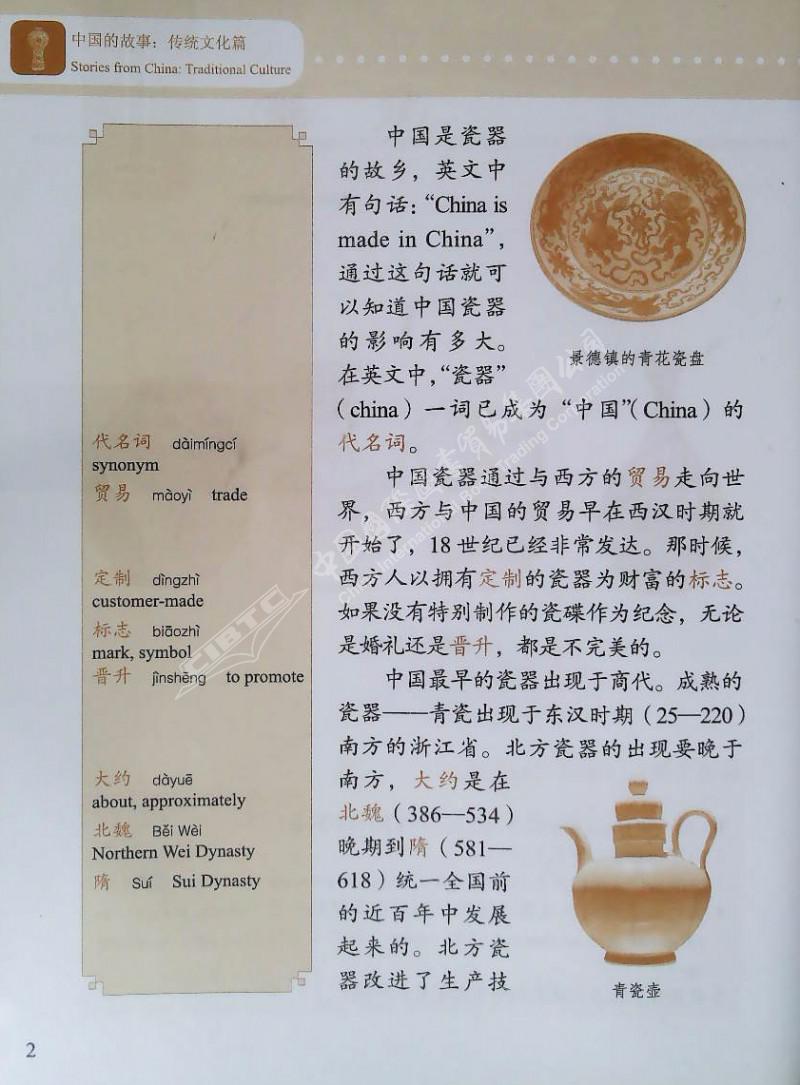 中国的故事：传统文化篇
Stories from China: Traditional Culture
中国是瓷器
的故乡，英文中
有句话：“China is
made in China”，
通过这句话就可
以知道中国瓷器
的影响有多大。
在英文中，“瓷器”
（china）一词已成为“中国”（China）的
代名词。
中国瓷器通过与西方的贸易走向世
界，西方与中国的贸易早在西汉时期就
开始了，18世纪已经非常发达。那时候，
西方人以拥有定制的瓷器为财富的标志。
如果没有特别制作的瓷碟作为纪念，无论
是婚礼还是晋升，都是不完美的。
中国最早的瓷器出现于商代。成熟的
瓷器——青瓷出现于东汉时期（25—220）
南方的浙江省。北方瓷器的出现要晚于
南方，大约是在
北魏（386—534）
晚期到隋（581—
618）统一全国前
的近百年中发展
起来的。北方瓷
器改进了生产技
景德镇的青花瓷盘
青瓷壶
代名词 dàimíngcí
synonym
贸易 màoyì trade
定制 dìngzhì
customer-made
标志 biāozhì
mark, symbol
晋升 jìnshēng to promote
大约 dàyuē
about, approximately
北魏 Běi Wèi
Northern Wei Dynasty
隋 Suí Sui Dynasty
2
CIBTC
中国国际图书贸易集团公司
China International Book Trading Corporation